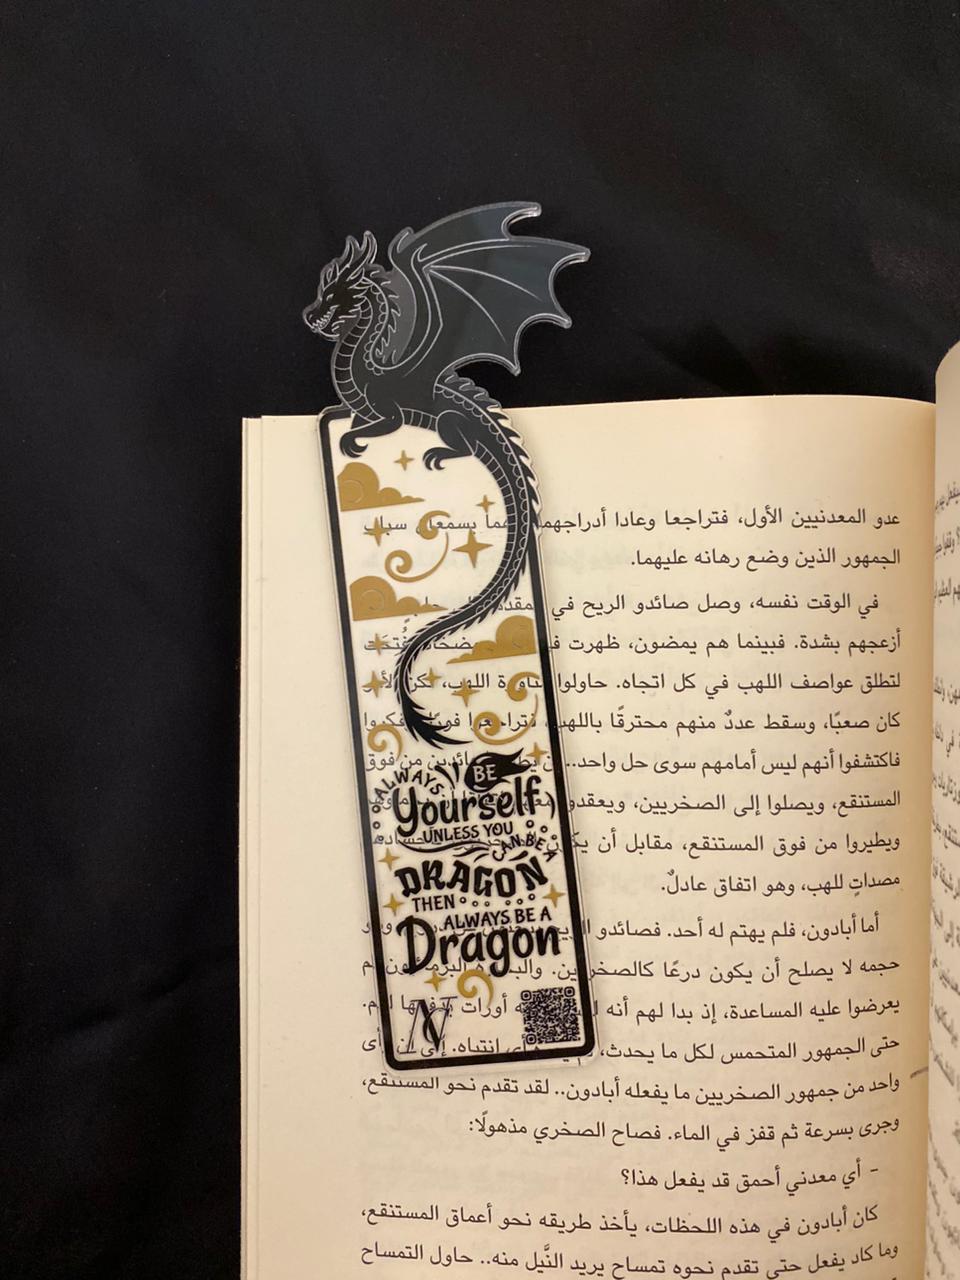 ALWAYS BE
Yourself
UNLESS YOU
CAN BE A
DRAGON
THEN
ALWAYS BE A
Dragon
N
عدو المعدنيين الأول، فتراجعا وعادا أدراجهما يسمعان سباب
الجمهور الذين وضع رهانه عليهما.
في الوقت نفسه، وصل صائدو الريح في
أزعجهم بشدة. فبينما هم يمضون، ظهرت فُتحَت
لتطلق عواصف اللهب في كل اتجاه. حاولوا مناورة اللهب، لكن الأمر
كان صعبًا، وسقط عددٌ منهم محترقًا باللهب، فتراجعوا فورًا. فكروا
فاكتشفوا أنهم ليس أمامهم سوى حل واحد.. من فوق
المستنقع، ويصلوا إلى الصخريين، ويعقدوا
ويطيروا من فوق المستنقع، مقابل أن
مصداتٍ للهب، وهو اتفاق عادلٌ.
أما أبادون، فلم يهتم له أحد. فصائدو الريح
حجمه لا يصلح أن يكون درعًا كالصخريين.
يعرضوا عليه المساعدة، إذ بدا لهم أنه
حتى الجمهور المتحمس لكل ما يحدث، انتباه. إلى أن رأى
واحد من جمهور الصخريين ما يفعله أبادون.. لقد تقدم نحو المستنقع،
وجرى بسرعة ثم قفز في الماء. فصاح الصخري مذهولًا:
- أي معدني أحمق قد يفعل هذا؟
كان أبادون في هذه اللحظات، يأخذ طريقه نحو أعماق المستنقع،
وما كاد يفعل حتى تقدم نحوه تمساح يريد النَّيل منه.. حاول التمساح